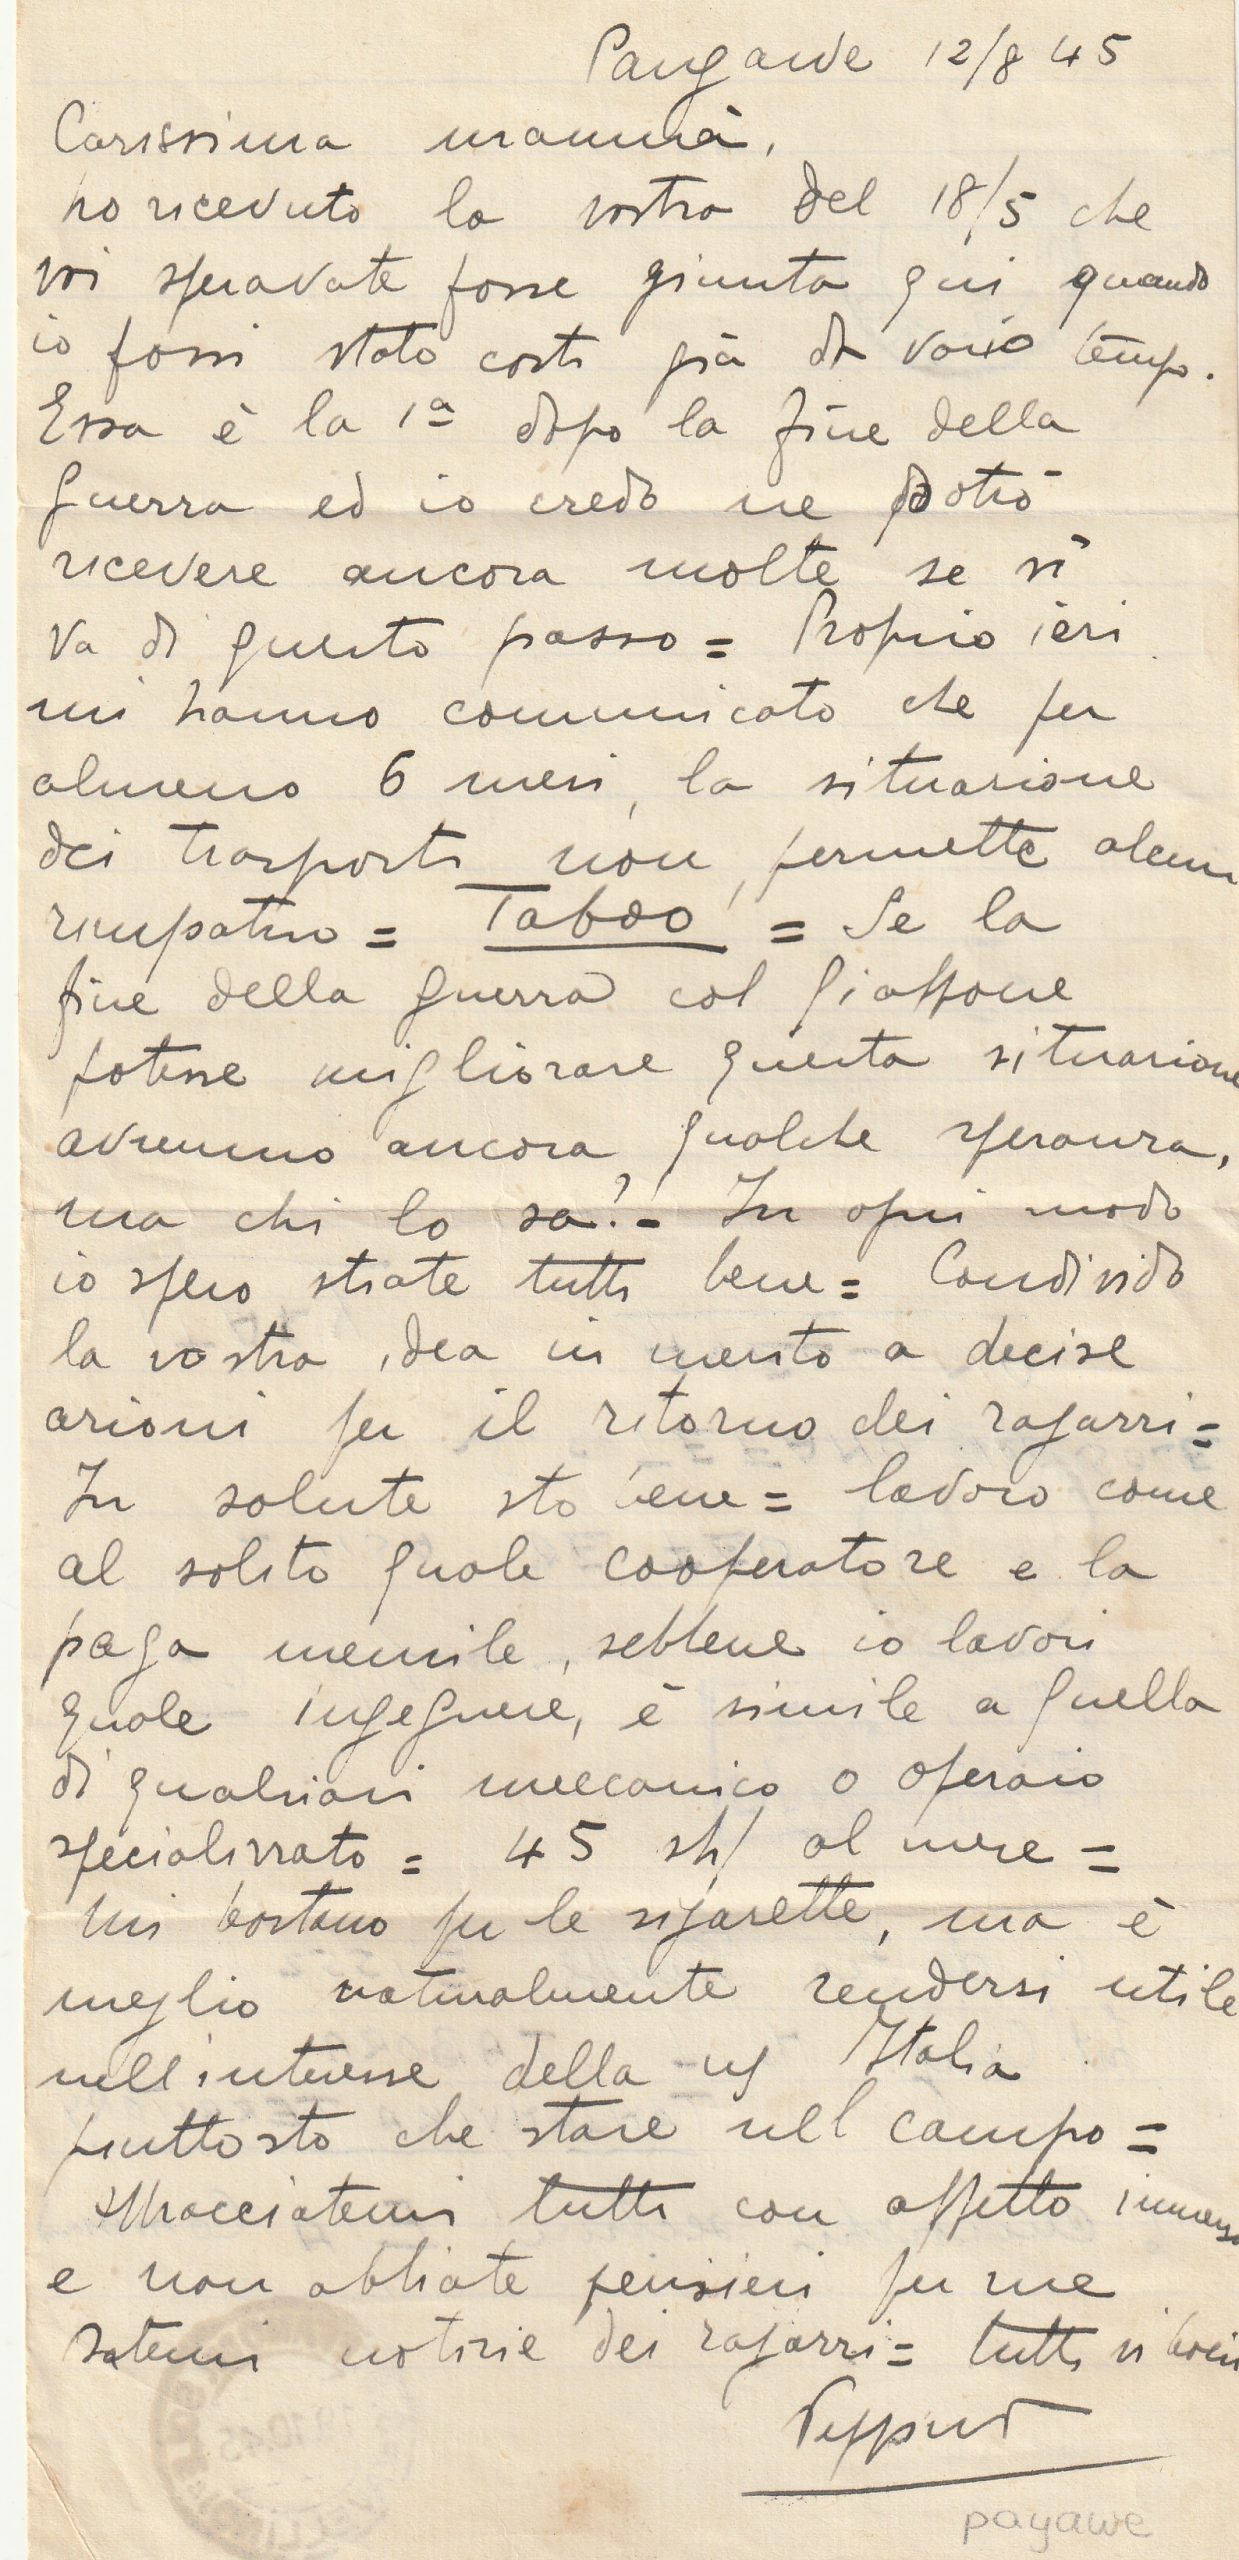 Pangawe 12/8 45
Carissima mammà,
ho ricevuto la vostra del 18/5 che
voi speravate fosse giunta qui quando
io fossi stato costì già da vario tempo.
Essa è la 1ª dopo la fine della
guerra ed io credo ne potrò
ricevere ancora molte se si
va di questo passo = Proprio ieri
mi hanno comunicato che per
almeno 6 mesi, la situazione
dei trasporti non permette alcun
rimpatrio = Taboo = Se la
fine della guerra col Giappone
potesse migliorare questa situazione
avremmo ancora qualche speranza,
ma chi lo sa? - In ogni modo
io spero stiate tutti bene = Condivido
la vostra idea in merito a decise
azioni per il ritorno dei ragazzi =
In salute sto bene = lavoro come
al solito quale cooperatore e la
paga mensile, sebbene io lavori
quale ingegnere, è simile a quella
di qualsiasi meccanico o operaio
specializzato = 45 sh/ al mese =
Mi bastano per le sigarette, ma è
meglio naturalmente rendersi utile
nell'interesse della ns/ Italia
piuttosto che stare nel campo =
Abbracciatemi tutti con affetto immenso
e non abbiate pensieri per me
Datemi notizie dei ragazzi = tutti vi baci
payawe